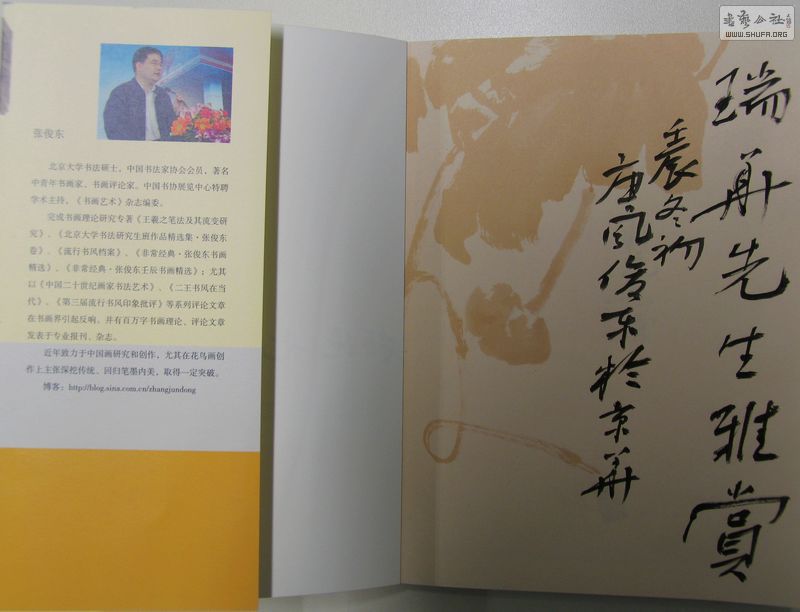 張俊东
北京大学书法硕士,中国书法家协会会员,著名
中青年书画家、书画评论家。中国书协展览中心特聘
学术主持,《书画艺术》杂志编委。
完成书画理论研究专著《王羲之笔法及其流变研
究》、《北京大学书法研究生班作品精选集·张俊东
卷》、《流行书风档案》、《非常经典·张俊东书画
精选》、《非常经典·张俊东壬辰书画精选》;尤其
以《中国二十世纪画家书法艺术》、《二王书风在当
代》、《第三届流行书风印象批评》等系列评论文章
在书画界引起反响。并有百万字书画理论、评论文章
发表于专业报刊、杂志。
近年致力于中国画研究和创作,尤其在花鸟画创
作上主张深挖传统、回归笔墨内美,取得一定突破。
博客:http://blog.sina.com.cn/zhangjundong
瑞華先生雅賞
壬辰冬初
唐风俊东於京華
书艺公社
WWW.SHUFA.ORG